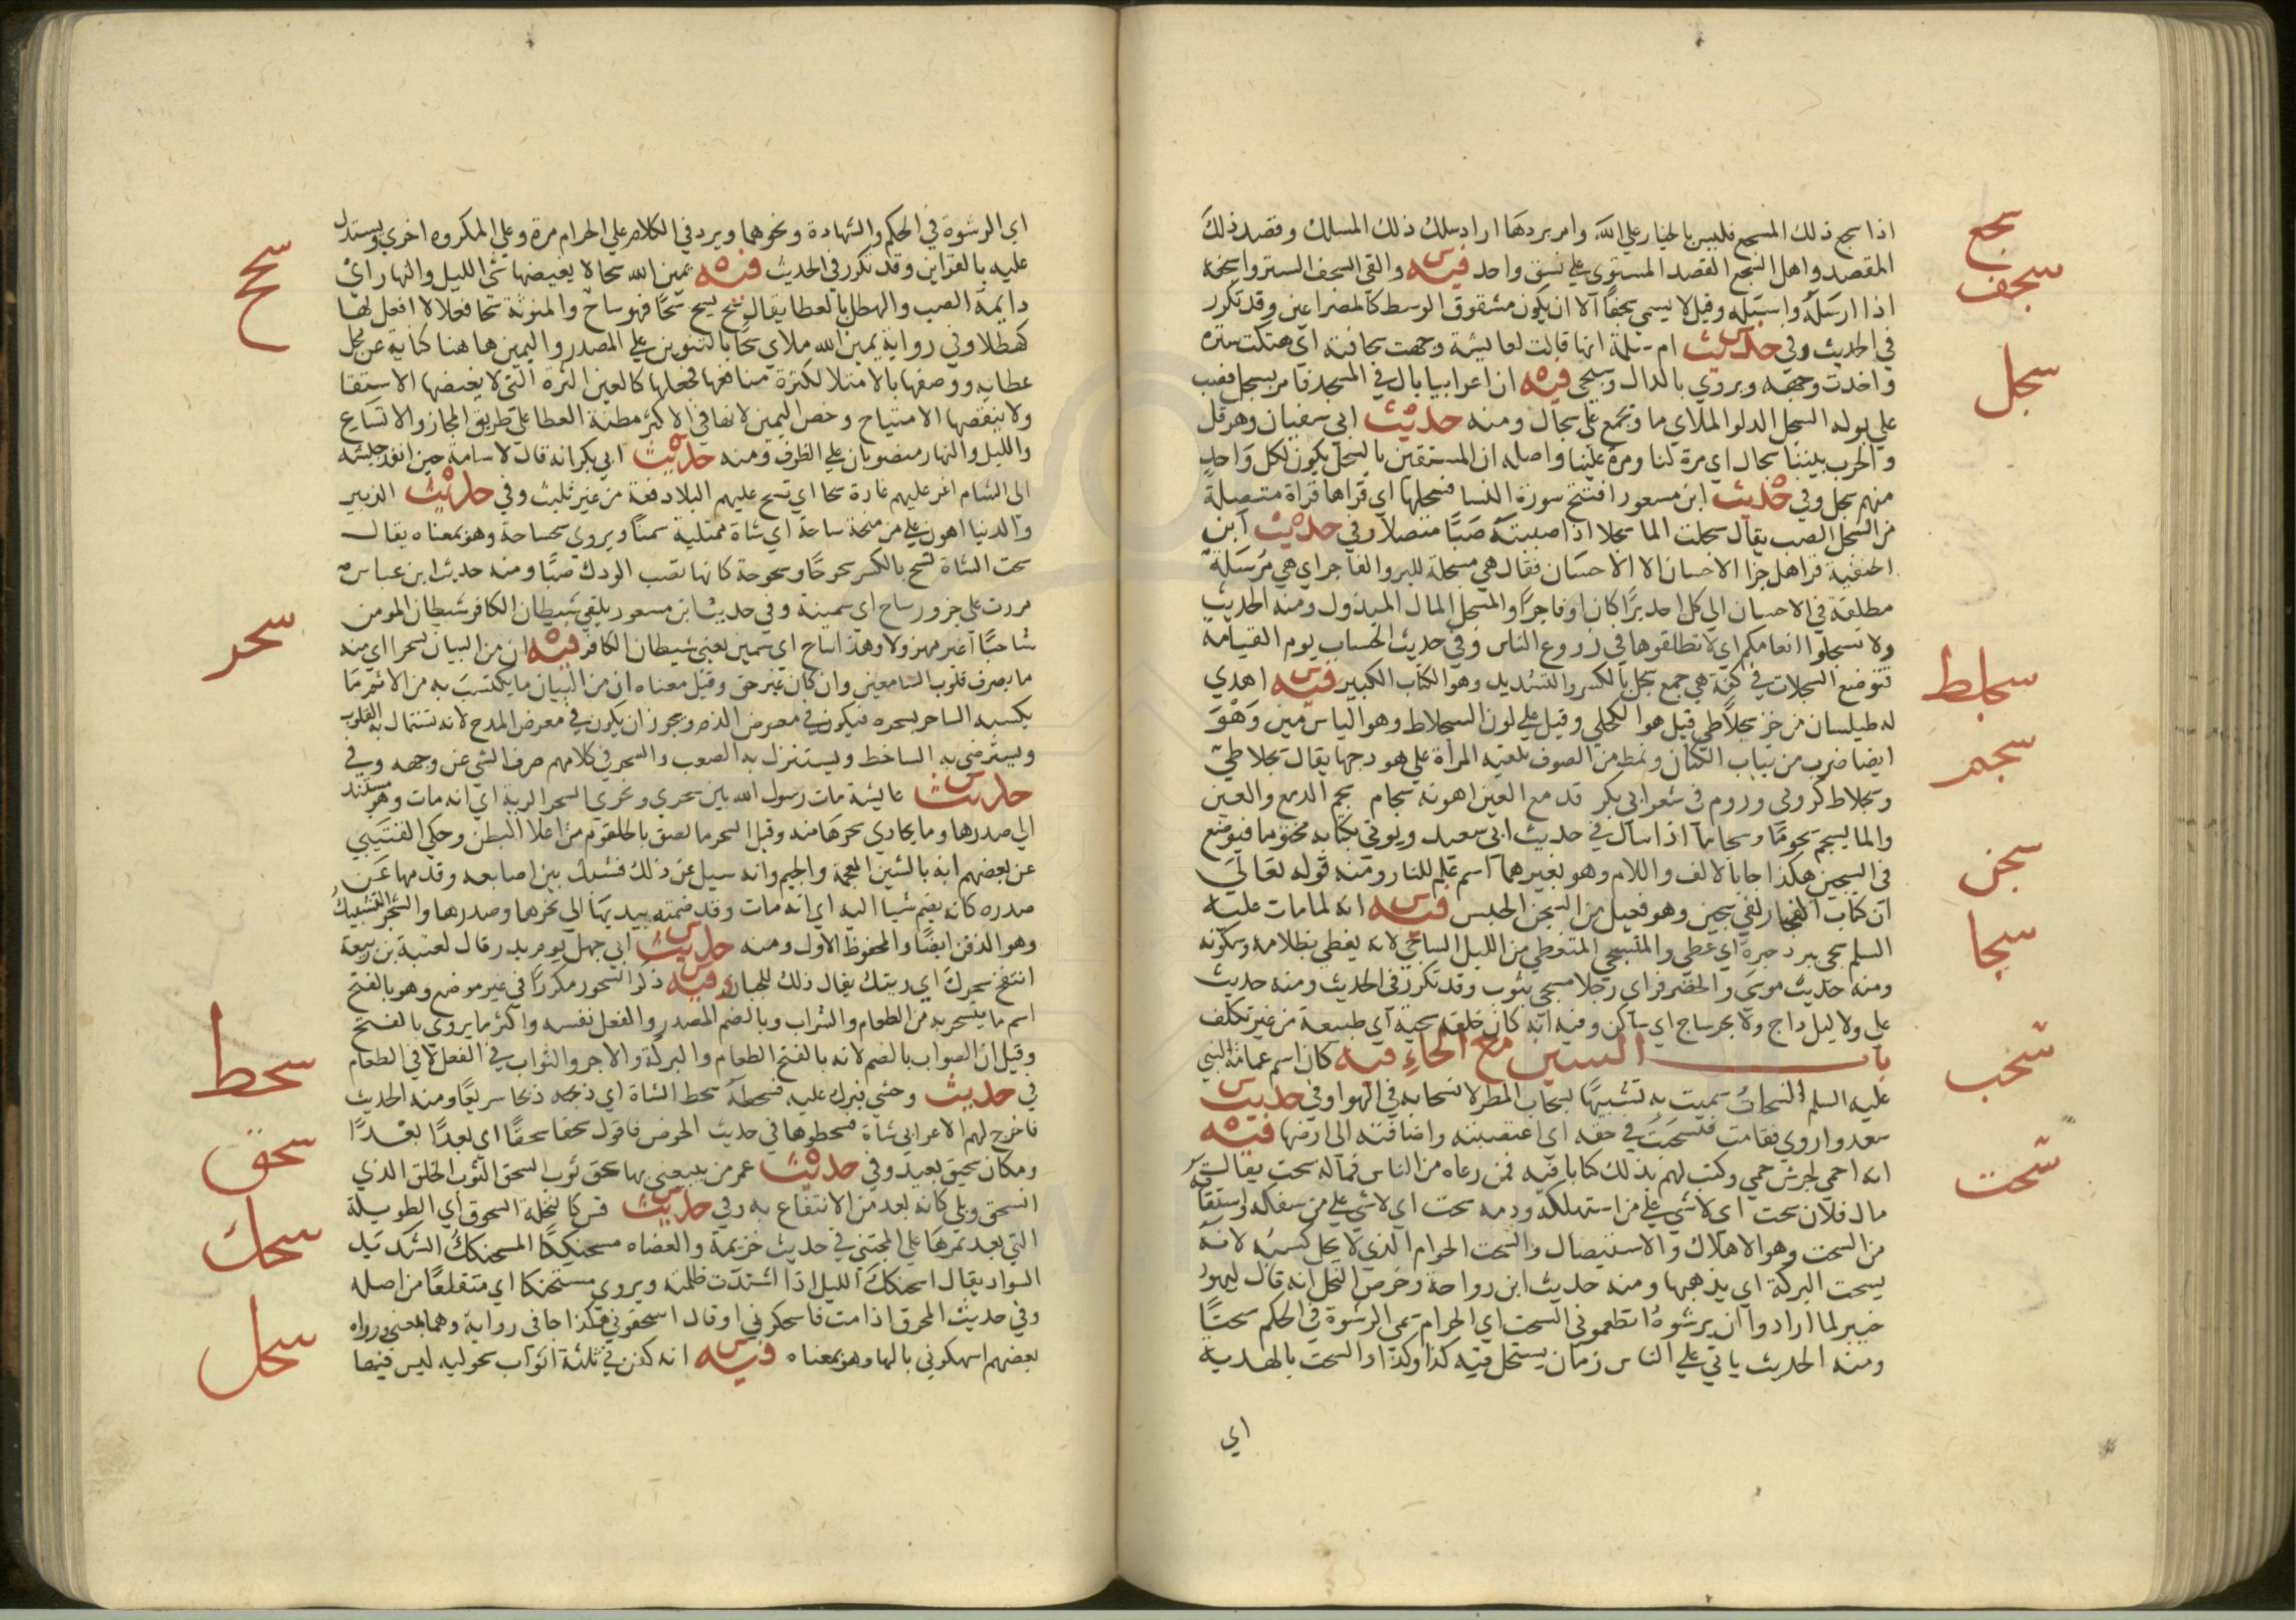 سجع
اذا سجع ذلك المسجع فليس بالخيار على الله وامر بردها اراد سلك ذلك المسلك وقصد ذلك
سجف
المقصد واصل السجع القصد المستوي على نسق واحد فيه والقى السجف الستر واسجفه
اذا ارسله واسبله وقيل لا يسمى سجفا الا ان يكون مشقوق الوسط كالمصراعين وقد تكرر
في الحديث وفي حديث ام سلمة انها قالت لعايشة وجهت سجافته اي هتكت ستره
سجل
واخذت وجهه ويروي بالدال وسيجي فيه ان اعرابيا بال في المسجد فامر بسجل فصب
على بوله السجل الدلو الملاي ما وتجمع على سجال ومنه حديث ابي سفيان وهرقل
والحرب بيننا سجال اي مرة لنا ومرة علينا واصله ان المستقين بالسجل يكون لكل واحد
منهم سجل وفي حديث ابن مسعود افتتح سورة النسا فسجلها اي قراها قراة متصلة
من السجل الصب يقال سجلت الما سجلا اذا صببته صبا متصلا وفي حديث ابن
الحنفية قرا هل جزا الاحسان الا الاحسان فقال هي مسجلة للبر والفاجر اي هي مرسلة
مطلقة في الاحسان الى كل احد برا كان او فاجرا والمسجل المال المبذول ومنه الحديث
ولا تسجلوا انعامكم اي لا تطلقوها في زروع الناس وفي حديث الحساب يوم القيامة
سجلط
فتوضع السجلات في كفة هي جمع سجل بالكسر والتشديد وهو الكتاب الكبير فيه اهدي
له طيلسان من خز سجلاطي قيل هو الكحلي وقيل على لون السجلاط وهو الياسمين وهو
سجم
ايضا ضرب من ثياب الكتان ونمط من الصوف تلقيه المراة على هودجها يقال سجلاطي
وسجلاط كرومي وروم في شعر ابي بكر قد مع العين اهونه سجام سجم الدمع والعين
سجن
والما يسجم سجوما وسجاما اذا سال في حديث ابي سعيد ويوتى بكتابه مختوما فيوضع
في السجين هكذا جا بالالف واللام وهو بغيرهما اسم علم للنار ومنه قوله تعالى
سجا
ان كتاب الفجار لفي سجين وهو فعيل من السجن الحبس فيه انه لما مات عليه
السلم سجي ببرد حبرة اي غطي والمتسجي المتغطي من الليل الساجي لانه يغطي بظلامه وسكونه
ومنه حديث موسى والخضر فراي رجلا مسجى بثوب وقد تكرر في الحديث ومنه حديث
علي ولا ليل داج ولا بحر ساج اي ساكن وفيه انه كان خلقه سجية اي طبيعة من غير تكلف
سحب
باب السين مع الحاء فيه كان اسم عمامة النبي
عليه السلم السحاب سميت به تشبيها بسحاب المطر لانسحابه في الهوا وفي حديث
سعد واروي فقامت فتسحبت في حقه اي اغتصبته واضافته الى ارضها فيه
سحت
انه احمى لجرش حمى وكتب لهم بذلك كتابا فيه فمن رعاه من الناس فماله سحت يقال
مال فلان سحت اي لا شي على من استهلكه ودمه سحت اي لا شي على من سفكه واشتقاقه
من السحت وهو الاهلاك والاستيصال والسحت الحرام الذي لا يحل كسبه لانه
يسحت البركة اي يذهبها ومنه حديث ابن رواحة وخرص النخل انه قال ليهود
خيبر لما ارادوا ان يرشوه اتطعموني السحت اي الحرام سمى الرشوة في الحكم سحتا
ومنه الحديث ياتي على الناس زمان يستحل فيه كذا وكذا والسحت بالهدية
اي
اي الرشوة في الحكم والشهادة ونحوهما ويرد في الكلام على الحرام مرة وعلى المكروه اخرى ويستدل
سحح
عليه بالقراين وقد تكرر في الحديث فيه يمين الله سحا لا يغيضها شي الليل والنهار اي
دايمة الصب والهطل بالعطا يقال سح يسح سحا فهو ساح والمونثة سحا فعلا لا افعل لها
كهطلا وفي رواية يمين الله ملاي سحا بالتنوين على المصدر واليمين هاهنا كناية عن محل
عطايه ووصفها بالامتلا لكثرة منافعها فجعلها كالعين الثرة التي لا يغيضها الاستقا
ولا ينقصها الامتياح وخص اليمين لانها في الاكثر مظنة العطا على طريق المجاز والاتساع
والليل والنهار منصوبان على الظرف ومنه حديث ابي بكر انه قال لاسامة حين انفذ جيشه
الى الشام اغر عليهم غارة سحا اي تسح عليهم البلا دفعة من غير تلبث وفي حديث الزبير
والدنيا اهون علي من منحة ساحة اي شاة ممتلية سمنا ويروي سحساحة وهو بمعناه يقال
سحت الشاة تسح بالكسر سحوحا وسحوحة كانها تصب الودك صبا ومنه حديث ابن عباس
مررت على جزور ساح اي سمينة وفي حديث ابن مسعود يلقى شيطان الكافر شيطان المومن
سحر
شاحبا اغبر مهزولا وهذا ساح اي سمين يعني شيطان الكافر فيه ان من البيان لسحرا اي منه
ما يصرف قلوب السامعين وان كان غير حق وقيل معناه ان من البيان ما يكتسب به من الاثم ما
يكتسبه الساحر بسحره فيكون في معرض الذم ويجوز ان يكون في معرض المدح لانه تستمال به القلوب
ويسترضى به الساخط ويستنزل به الصعب والسحر في كلامهم صرف الشي عن وجهه وفي
حديث عايشة مات رسول الله بين سحري ونحري السحر الرية اي انه مات وهو مستند
الى صدرها وما يحاذي سحرها منه وقيل السحر ما لصق بالحلقوم من اعلا البطن وحكى القتيبي
عن بعضهم انه بالشين المعجمة والجيم وانه سيل عن ذلك فشبك بين اصابعه وقدمها عن
صدره كانه يضم شيا اليه اي انه مات وقد ضمته بيديها الى نحرها وصدرها والشجر التشبيك
وهو الذقن ايضا والمحفوظ الاول ومنه حديث ابي جهل يوم بدر قال لعتبة بن ربيعة
انتفخ سحرك اي ريتك يقال ذلك للجبان وفيه ذكر السحور مكررا في غير موضع وهو بالفتح
اسم ما يتسحر به من الطعام والشراب وبالضم المصدر والفعل نفسه واكثر ما يروي بالفتح
وقيل ان الصواب بالضم لانه بالفتح الطعام والبركة والاجر والثواب في الفعل لا في الطعام
سحط
في حديث وحشي فبرك عليه فسحطه سحط الشاة اي ذبحه ذبحا سريعا ومنه الحديث
سحق
فاخرج لهم الاعرابي شاة فسحطوها في حديث الحوض فاقول سحقا سحقا اي بعدا بعدا
ومكان سحيق بعيد وفي حديث عمر من يبيعني بها سحق ثوب السحق الثوب الخلق الذي
انسحق وبلي كانه بعد من الانتفاع به وفي حديث قس كالنخلة السحوق اي الطويلة
سحك
التي بعد ثمرها على المجتني في حديث خزيمة والعضاه مسحنككا المسحنكك الشديد
السواد يقال اسحنكك الليل اذا اشتدت ظلمته ويروي مستحنكا اي متقلعا من اصله
وفي حديث المحرق اذا مت فاسحكوني او قال اسحقوني هكذا جا في رواية وهما بمعنى ورواه
سحل
بعضهم اسهكوني بالها وهو بمعناه فيه انه كفن في ثلثة اثواب سحولية ليس فيها